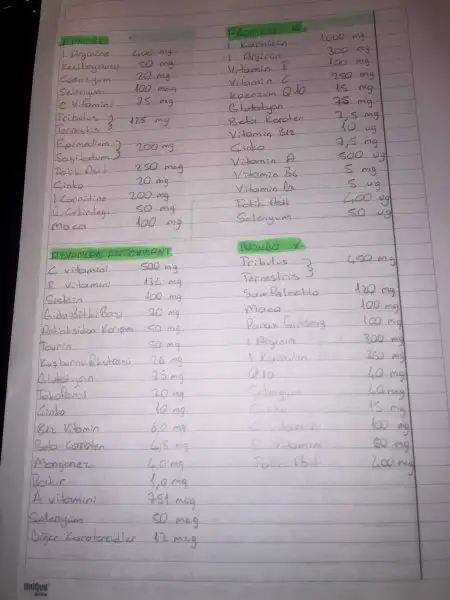 L Arginine 400 mg
50 mg
20 mg
Selenyum 100 mcg
C Vitamini 75 mg
Tribulus
Terrestris } 125 mg
Epimedium
Sagitatum } 200 mg
Folik Asit 250 mcg
Ginko 20 mg
L Carnitine 200 mg
50 mg
Maca 100 mg
L Karnitin 1000 mg
L Arginin 300 mg
Vitamin E 100 mg
Vitamin C 250 mg
Koenzim Q10 15 mg
Glutatyon 75 mg
Beta Karoten 2,5 mg
Vitamin B12 10 ug
Ginko 7,5 mg
Vitamin A 500 ug
Vitamin B6 5 mg
Vitamin 5 ug
Folik Asit 400 ug
Selenyum 50 ug
C vitamini 500 mg
E vitamini 134 mg
Sistein 100 mg
20 mg
Antioksidan Karışım 50 mg
Taurin 50 mg
26 mg
Glutatyon 25 mg
20 mg
Ginko 10 mg
Vitamin 6,0 mg
Beta Karoten 4,5 mg
Manganez 4,0 mg
Bakır 1,0 mg
A vitamini 751 mcg
Selenyum 50 mcg
Diğer Karotenoidler 12 mcg
Tribulus
Terrestris } 450 mg
Saw Palmetto 120 mg
Maca 100 mg
Panax Ginseng 100 mg
L Arginin 300 mg
L Karnitin 250 mg
Q10 40 mg
Selenyum
Ginko 15 mg
C vitamini 100 mg
E vitamini 50 mg
Folik Asit 400 mcg
unique